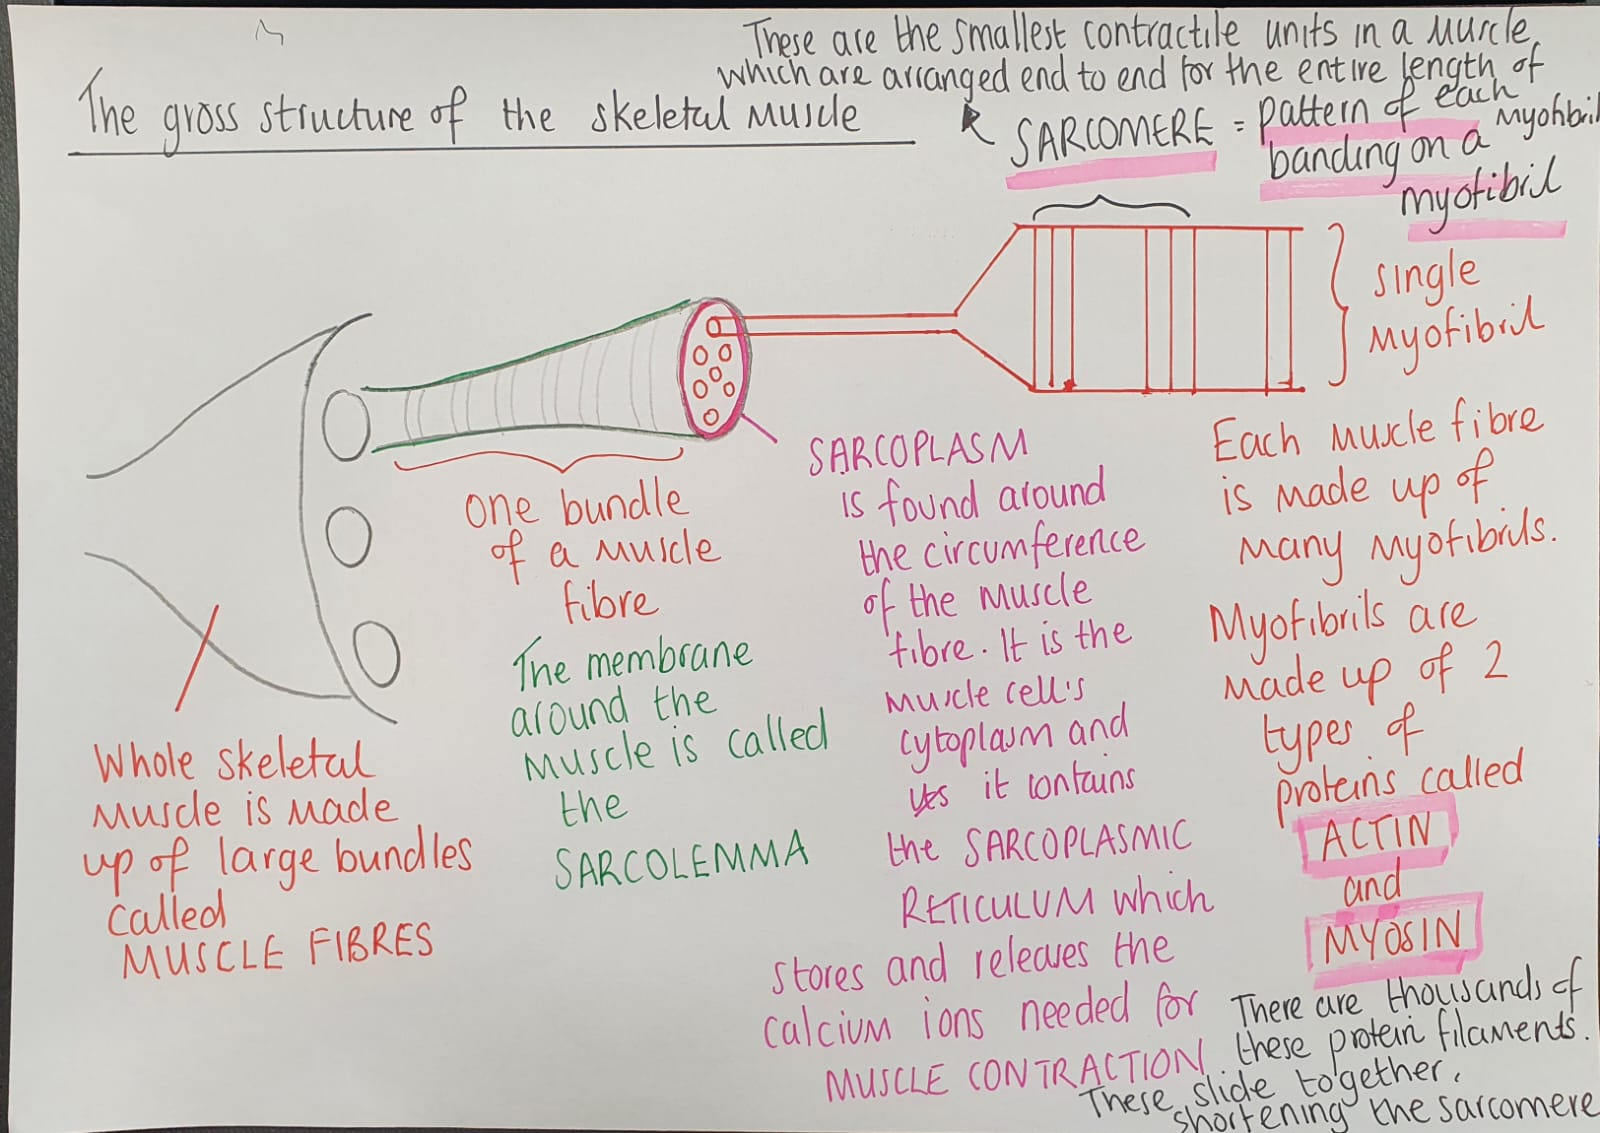 The gross structure of the skeletal muscle
These are the smallest contractile units in a muscle
which are arranged end to end for the entire length of
each
myofibril
SARCOMERE = pattern of
banding on a
myofibril
single
myofibril
one bundle
of a muscle
fibre
The membrane
around the
muscle is called
the
SARCOLEMMA
Whole skeletal
muscle is made
up of large bundles
called
MUSCLE FIBRES
SARCOPLASM
is found around
the circumference
of the muscle
fibre. It is the
muscle cell's
cytoplasm and
it contains
the SARCOPLASMIC
RETICULUM which
stores and releases the
calcium ions needed for
MUSCLE CONTRACTION
Each muscle fibre
is made up of
many myofibrils.
Myofibrils are
made up of 2
types of
proteins called
ACTIN
and
MYOSIN
There are thousands of
these protein filaments.
These slide together,
shortening the sarcomere